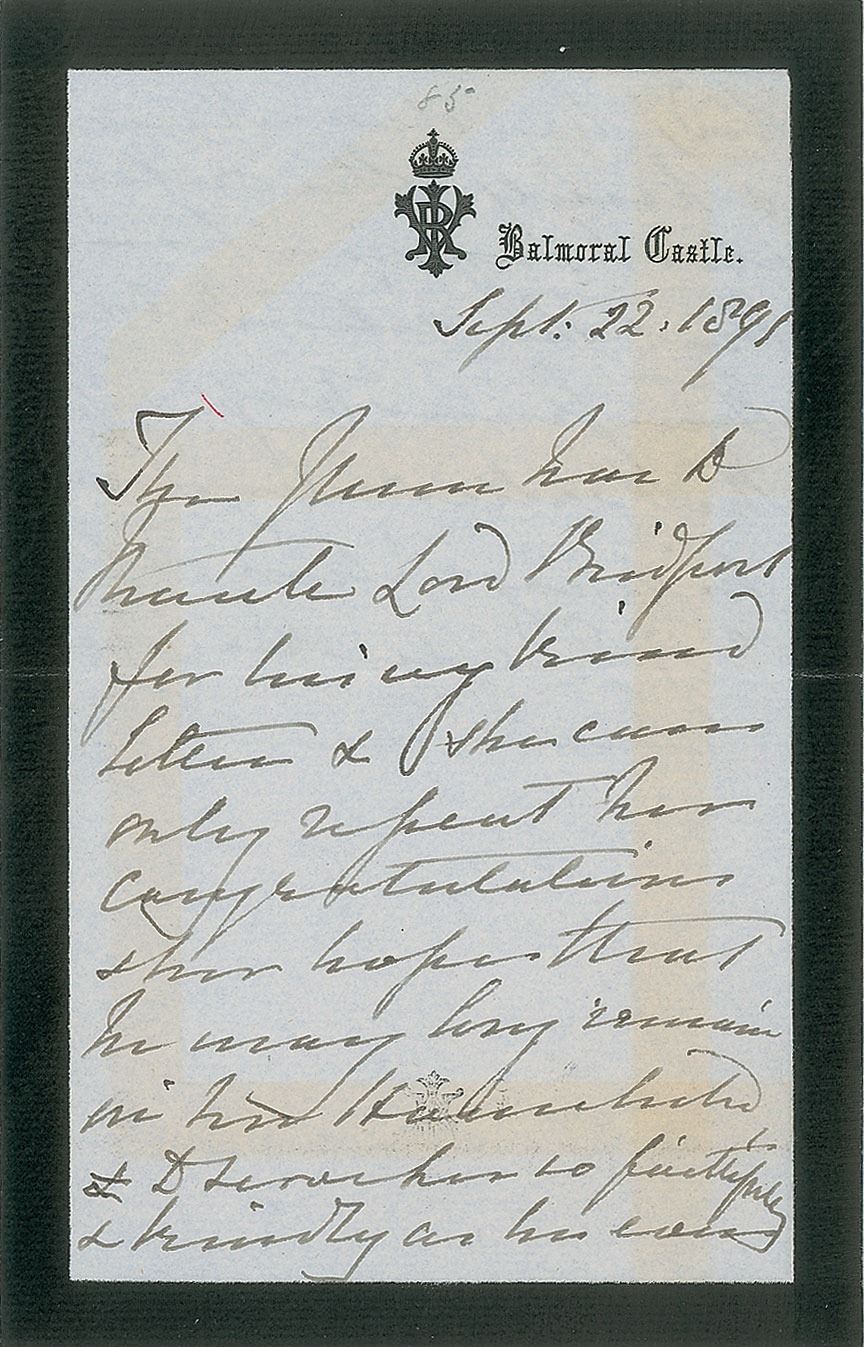 85
VRI
Balmoral Castle.
Sept: 22. 1891
The Queen has to
thank Lord Bridport
for his very kind
letter & she can
only repeat her
congratulations
she hopes that
he may long remain
in her Household
& to serve her so faithfully
& kindly as he